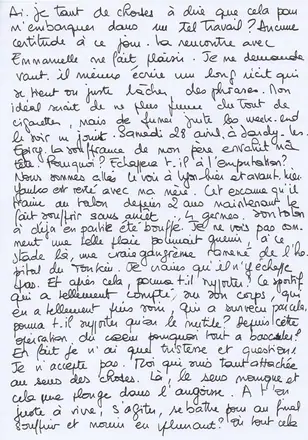 Ai-je tant de choses à dire que cela pour
m'embarquer dans un tel travail? Aucune
certitude à ce jour. La rencontre avec
Emmanuelle me fait plaisir. Je me demande
vant. il mieux écrire un long récit qui
se tient ou juste lâcher des phrases. Mon
idéal serait de ne plus fumer du tout de
cigarettes, mais de fumer juste les week-end
le soir un joint. Samedi 28 avril, à
La souffrance de mon père envahit ma
tête. Pourquoi? Echapera t-il à l'amputation?
Nous sommes allés le voir à Lyon hier et avant hier.
est resté avec ma mère. Cet escarre qu'il
traîne au talon depuis 2 ans maintenant le
fait souffrir sans arrêt. 4 germes. Son talon
a déjà en partie été bouffé. Je ne vois pas com-
ment une telle plaie pourrait guérir, à ce
stade là, une vraie gangrène ramené de l'hô-
pital du Tonkin. Je crains qu'il n'y échappe
pas. Et après cela, pourra t-il supporter? Ce sportif
qui a tellement compté sur son corps, qui
en a tellement pris soin, qui a survécu
pourra t-il supporter qu'on le mutile? Depuis cette
opération du coeur pourquoi tout a basculé?
En fait je n'ai que tristesse et questions
Je n'accepte pas. Moi qui suis tout attachée
au sens des choses. Là, le sens manque et
cela me plonge dans l'angoisse. A t'on
juste à vivre, s'agiter, se battre pour au final
souffrir et mourir en fumant? Où tout cela